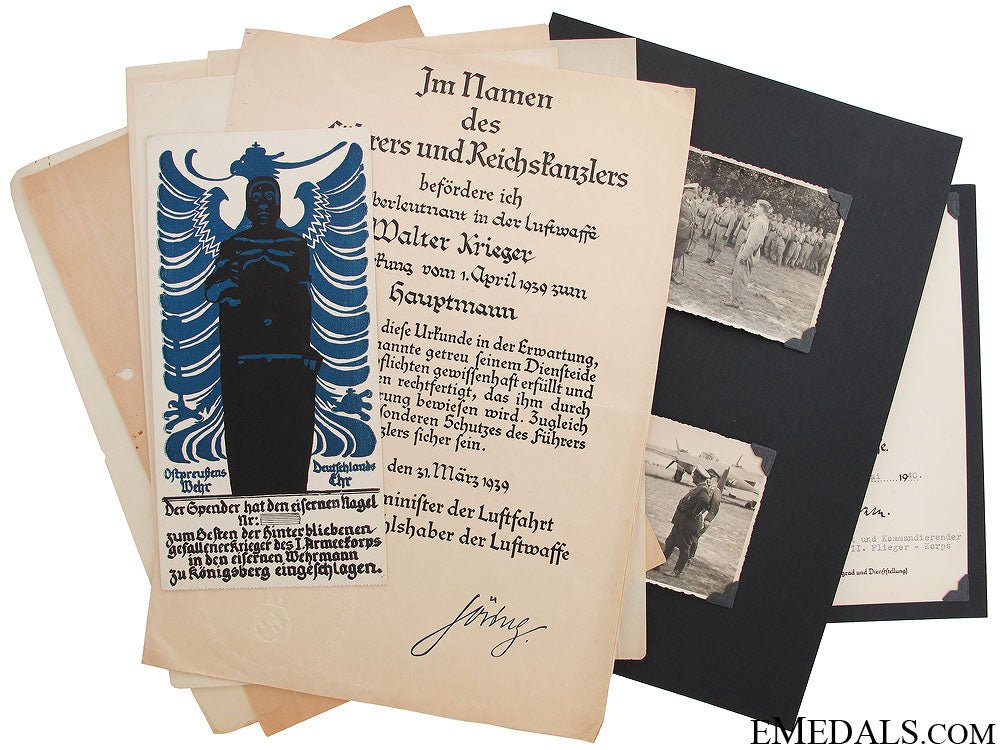 Im Namen
des
Führers und Reichskanzlers
befördere ich
Oberleutnant in der Luftwaffe
Walter Krieger
kung vom 1. April 1939 zum
Hauptmann
diese Urkunde in der Erwartung,
nannte getreu seinem Diensteide
pflichten gewissenhaft erfüllt und
en rechtfertigt, das ihm durch
rung bewiesen wird. Zugleich
sonderen Schutzes des Führers
nzlers sicher sein.
den 31. März 1939
minister der Luftfahrt
hlshaber der Luftwaffe
Göring.
Ostpreußens
Wehr
Deutschlands
Ehr
Der Spender hat den eisernen Nagel
Nr:
zum Besten der Hinterbliebenen
gefallener Krieger des I. Armeekorps
in den eisernen Wehrmann
zu Königsberg eingeschlagen.
1940.
und Kommandierender
II. Flieger - Korps
grad und Dienststellung)
EMEDALS.COM